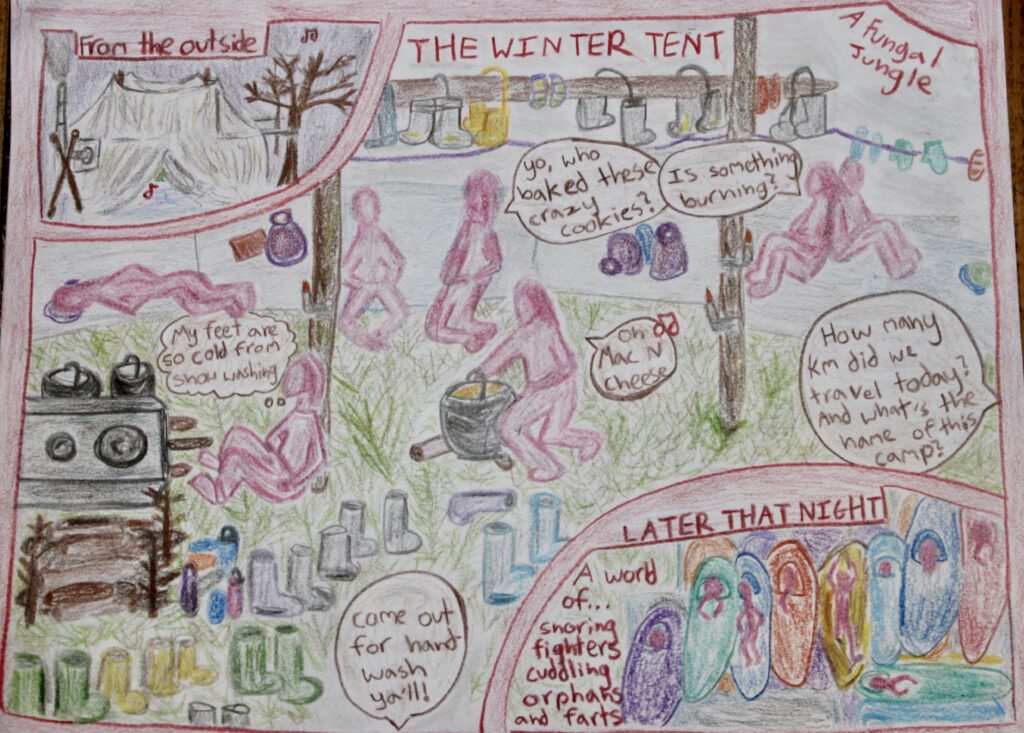 From the outside
THE WINTER TENT
A Fungal
Jungle
yo, who
baked these
crazy
cookies?
Is something
burning?
My feet are
so cold from
snow washing
oh
Mac N
cheese
How many
km did we
travel today?
And what's the
name of this
camp?
come out
for hand
wash
ya'll!
LATER THAT NIGHT
A word
of...
snoring
fighters
cuddling
orphans
and farts